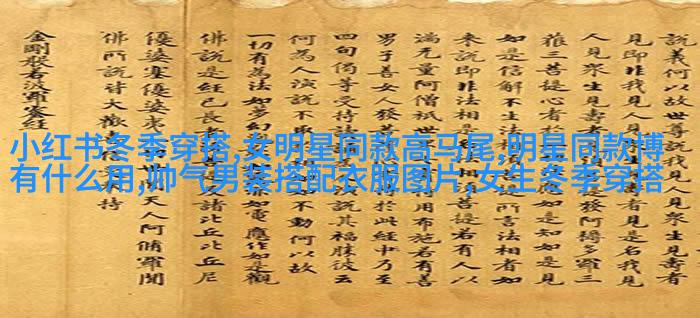 小红书冬季穿搭,女明星同款高马尾,明星同款博
有什么用,帅气男装搭配衣服图片,女生冬季穿搭
說義何以故世尊說我見人見眾生見壽者
見即非我見人見是名我見
人見眾生見壽者發阿耨多羅三
藐三菩提心者於應如是知如是
如是信解不生法相所言法相者如
來說即非法相是名菩提若有人以
滿无量阿僧祇世用布施若有善
男子善女人發菩於此經中乃至
四句偈等受持讀說其福勝彼云
何為人演說不取不動何以故
一切有為法如夢幻如電應作如是觀
佛說是經已長老諸比丘比丘尼
優婆塞優婆夷天人阿脩羅聞
佛所說皆大歡喜持
金剛般若波羅蜜經